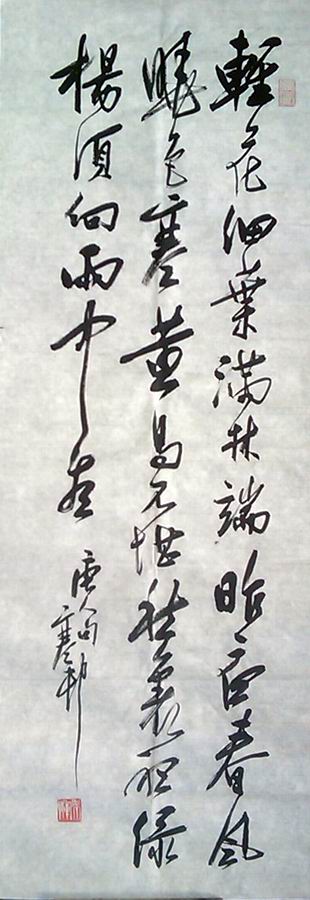 輕花細葉滿林端昨夜春風
曉色寒黃鳥不堪愁裏聽綠
楊須向雨中看
唐人句